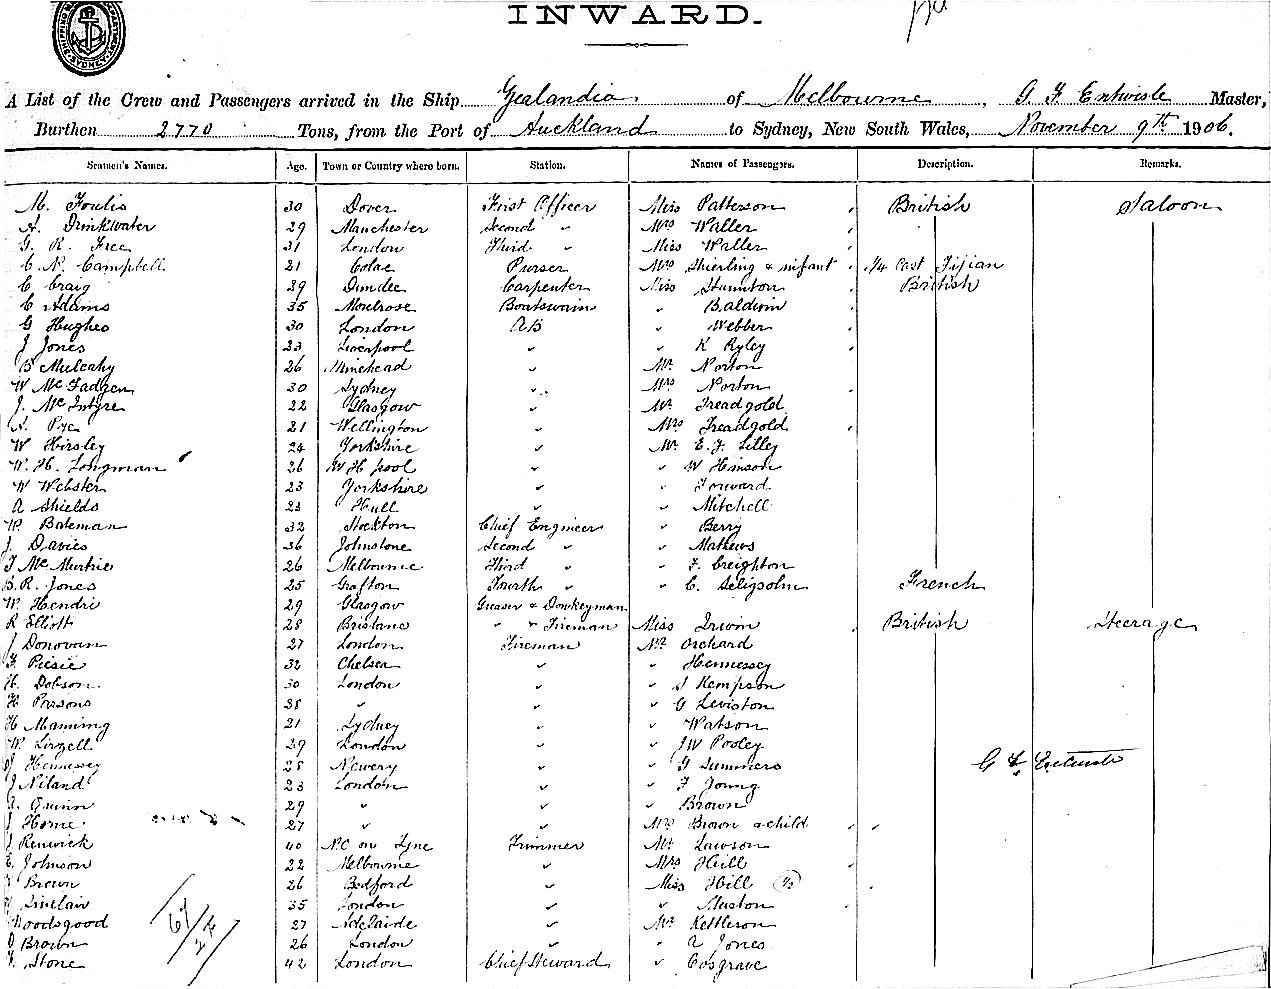 INWARD.
A List of the Crew and Passengers arrived in the Ship Zealandia of Melbourne, G. F. Entwisle Master,
Burthen 2770 Tons, from the Port of Auckland to Sydney, New South Wales, November 9th 1906.
Seamen's Names. Age. Town or Country where born. Station. Names of Passengers. Description. Remarks.
M. Foulis 30 Dover First Officer Miss Patterson British Saloon
A. Drinkwater 29 Manchester Second " Mrs Waller
G. R. Free 31 London Third " Miss Waller
C. N. Campbell 21 Colac Purser Mrs Shierling & infant 1/4 Cast Fijian
C Craig 29 Dundee Carpenter Miss British
C Adams 35 Montrose Boatswain " Baldwin
G Hughes 30 London AB " Webber
J Jones 23 Liverpool " " K Ryley
B Mulcahy 26 Minehead " Mr Norton
W McFadgen 30 Sydney " Mrs Norton
J. McIntyre 22 Glasgow " Mr Treadgold
A. Pye 21 Wellington " Mrs Treadgold
W Hirsley 24 Yorkshire " Mr E. J. Lilley
W. H. Longman 26 W H pool " " W Hinson
W Webster 23 Yorkshire " " Forward
A Shields 23 Hull " " Mitchell
W. Bateman 32 Stockton Chief Engineer " Berry
J. Davies 36 Johnstone Second " " Mathews
J McMurtrie 26 Melbourne Third " " F. Creighton
B. R. Jones 25 Grafton Fourth " " C. Seligsohn French
W. Hendri 29 Glasgow Greaser & Donkeyman
R Elliott 28 Brisbane " & Fireman Miss Irwin British Steerage
J Donovan 27 London Fireman Mr Orchard
F. Piesie 32 Chelsea " " Hennessey
H. Dobson 30 London " " S Kempson
H Parsons 38 " " " G Leviston
H Manning 21 Sydney " " Watson
W. Linzell 39 London " " J W Pooley
J Hennessey 28 Newery " " G Summers G F Entwisle
J Niland 23 London " " F Young
A. Quinn 29 " " " Brown
J Horne 27 " " Mrs Brown & child
J Renwick 40 N.C on Tyne Trimmer Mr Lawson
E. Johnson 22 Melbourne " Mrs Hill
Brown 26 Bedford " Miss Hill (1/2)
Sinclair 35 London " " Muston
Woodsgood 27 Adelaide " Mr Kettleson
Brown 26 London " " A Jones
Stone 42 London Chief Steward " Cosgrave
67/24